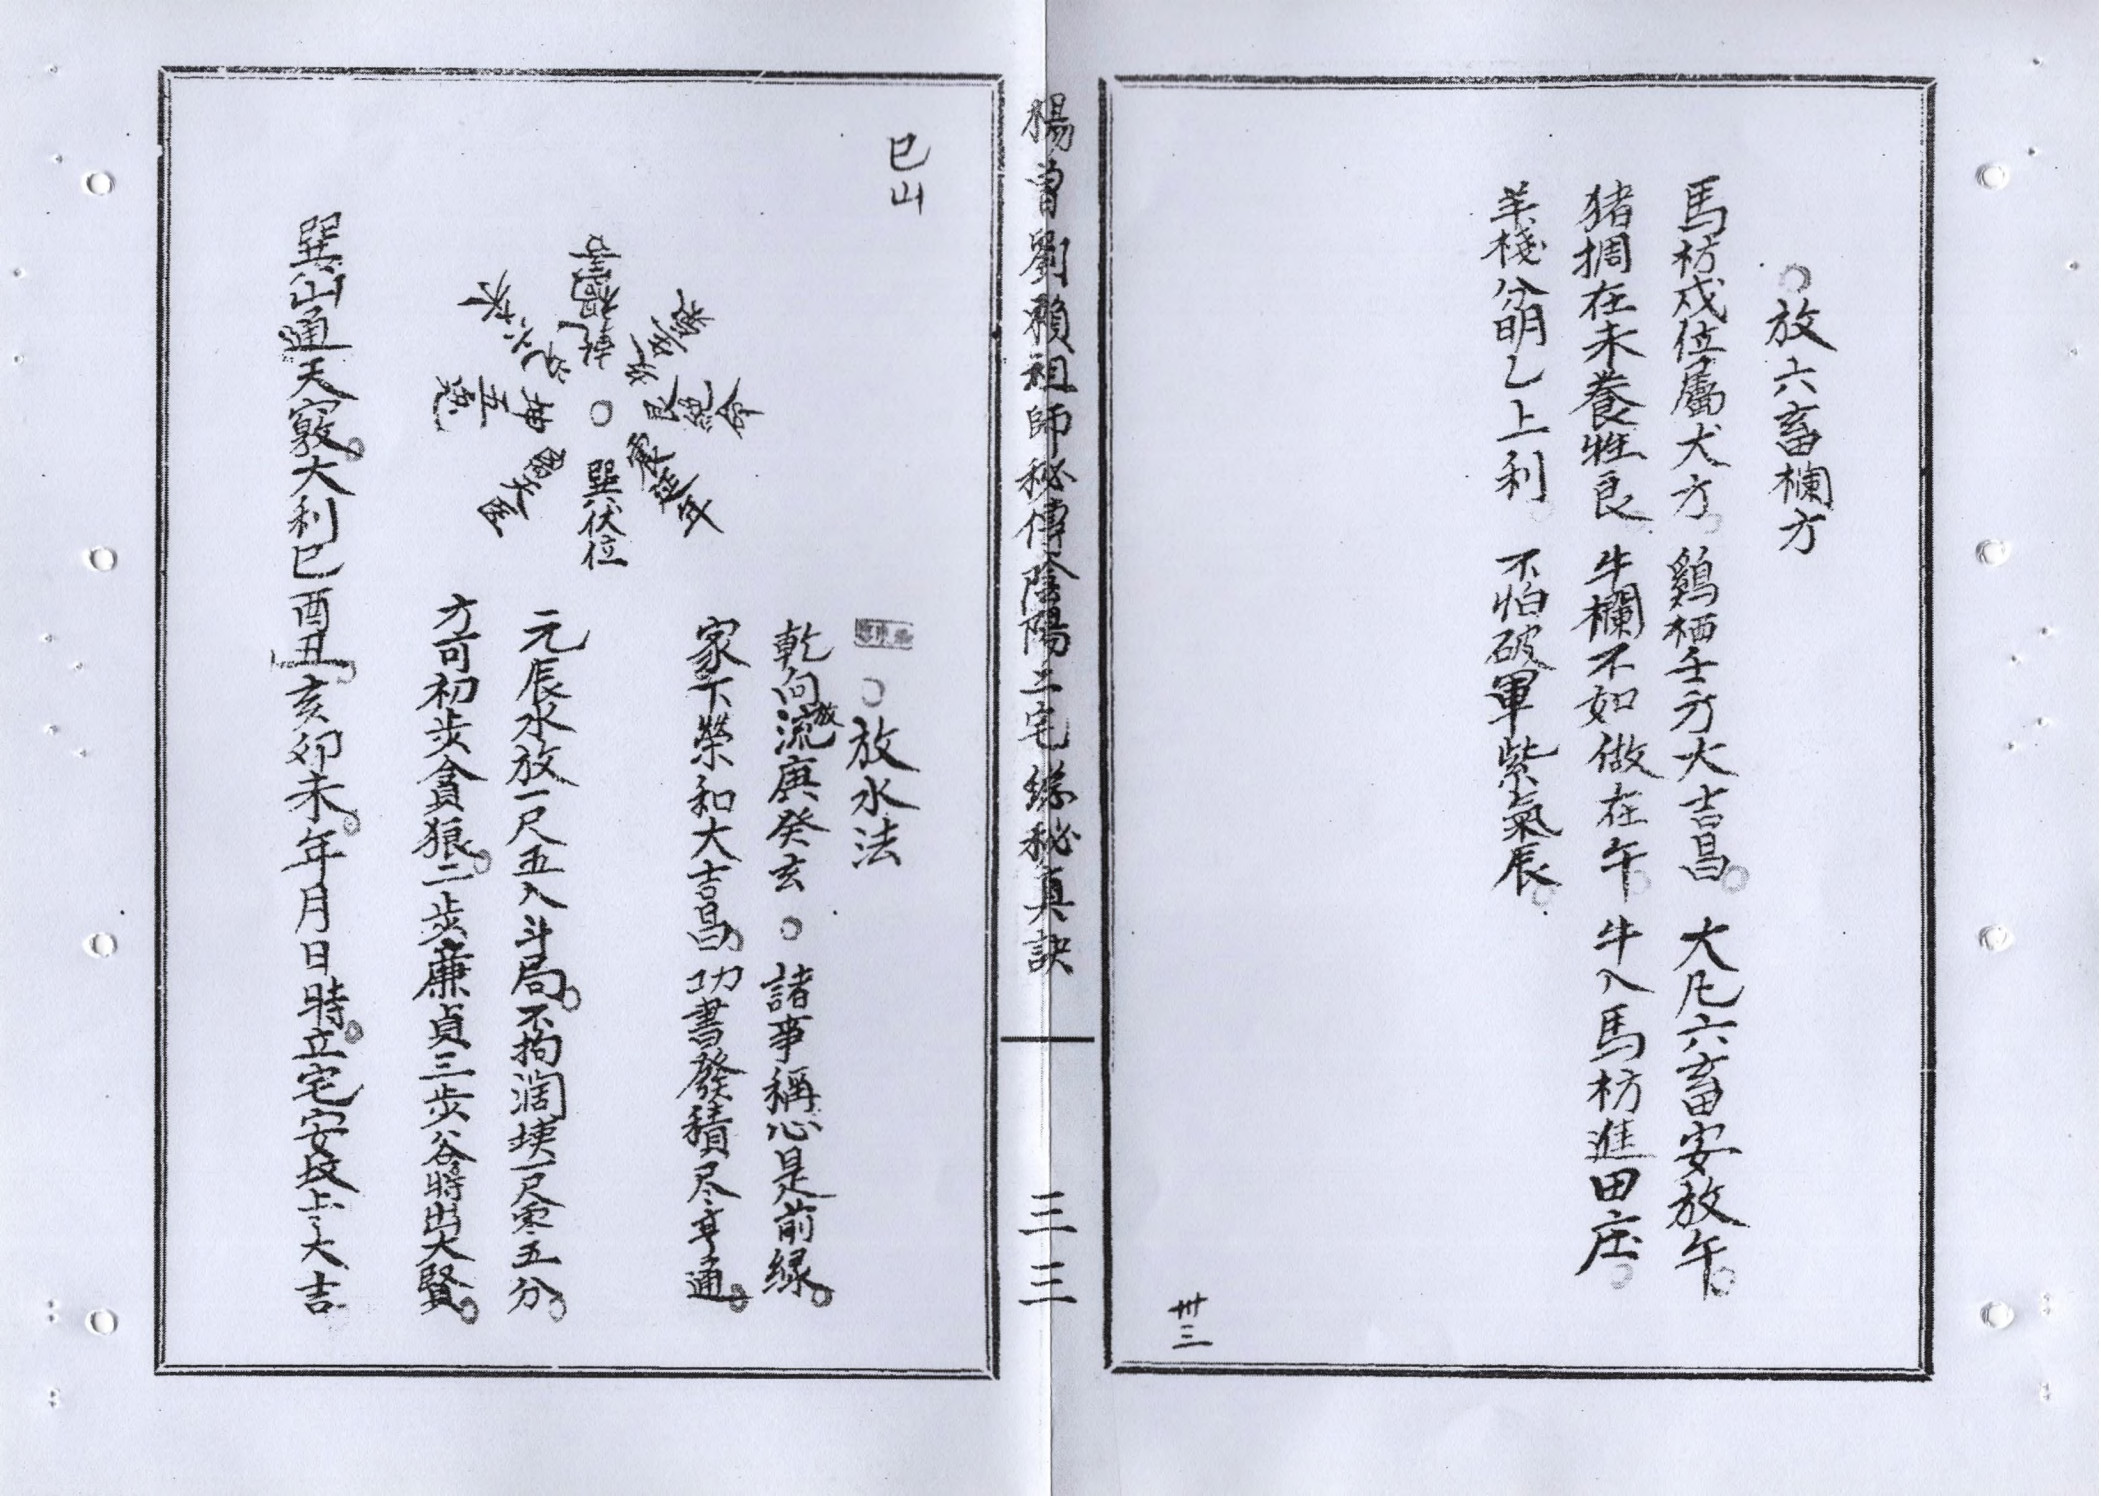 放六畜欄方
馬枋戍位屬犬方 鷄栖壬方大吉昌 大凡六畜安放午
猪椆在未養牲良 牛欄不如做在午 牛入馬枋進田庄
羊棧分明乙上利 不怕破軍紫氣辰
卅三
楊曾劉賴祖師秘傳陰陽二宅總秘真訣
三三
巳山
乾
艮絕命
巽伏位
離天醫
坤五鬼
放水法
乾向放流庚癸玄 諸事稱心是前緣
家下榮和大吉昌 功書發積尽亨通
元辰水放一尺五入斗局不拘濶㹫一尺零五分
方可初步貪狼二步廉貞三步谷將出大賢
巽山通天竅大利巳酉丑亥卯未年月日時立宅安坟上上大吉